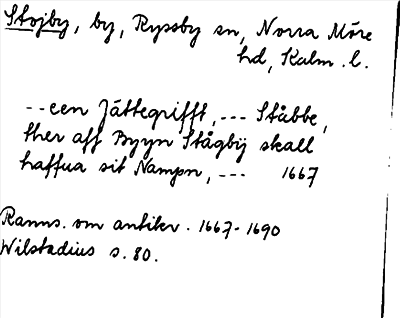 Stojby, by, Ryssby sn, Norra Möre
hd, Kalm. l.
-- een Jättegrifft, --- Ståbbe,
ther aff Byyn Stågbÿ skall
haffua sit Nampn, --- 1667
Ranns. om antikv. 1667-1690
Wilstadius s. 80.